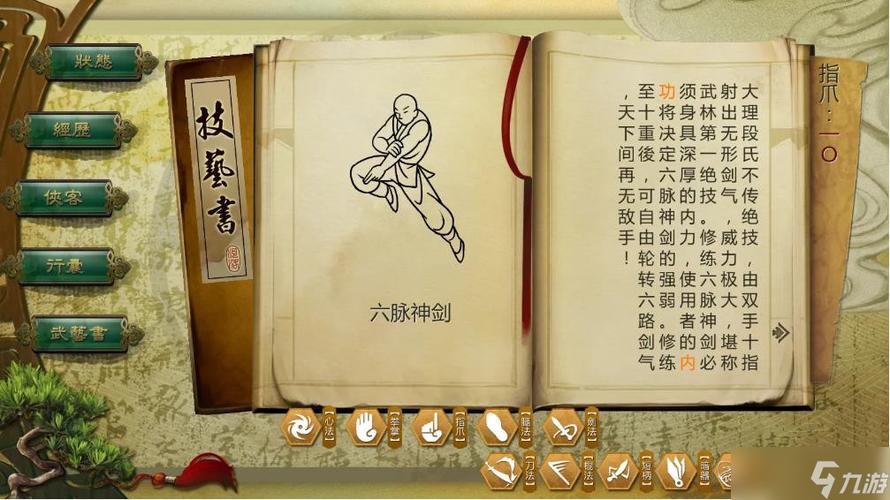 狀態
經歷
俠客
行囊
武藝書
技藝書
六脉神剑
指爪：一〇
大理段氏不传绝技，由双手十指
射出无形剑气，威力极大，堪称
武林第一绝技。修练六脉神剑必
须身具深厚的内力，使用者的内
功将决定六脉神剑的强弱。修练
至十重後，可自由轮转六路剑气
，天下间再无敌手！
【心法】
【拳掌】
【指爪】
【腿法】
【剑法】
【刀法】
【棍法】
【短柄】
【暗器】
九游